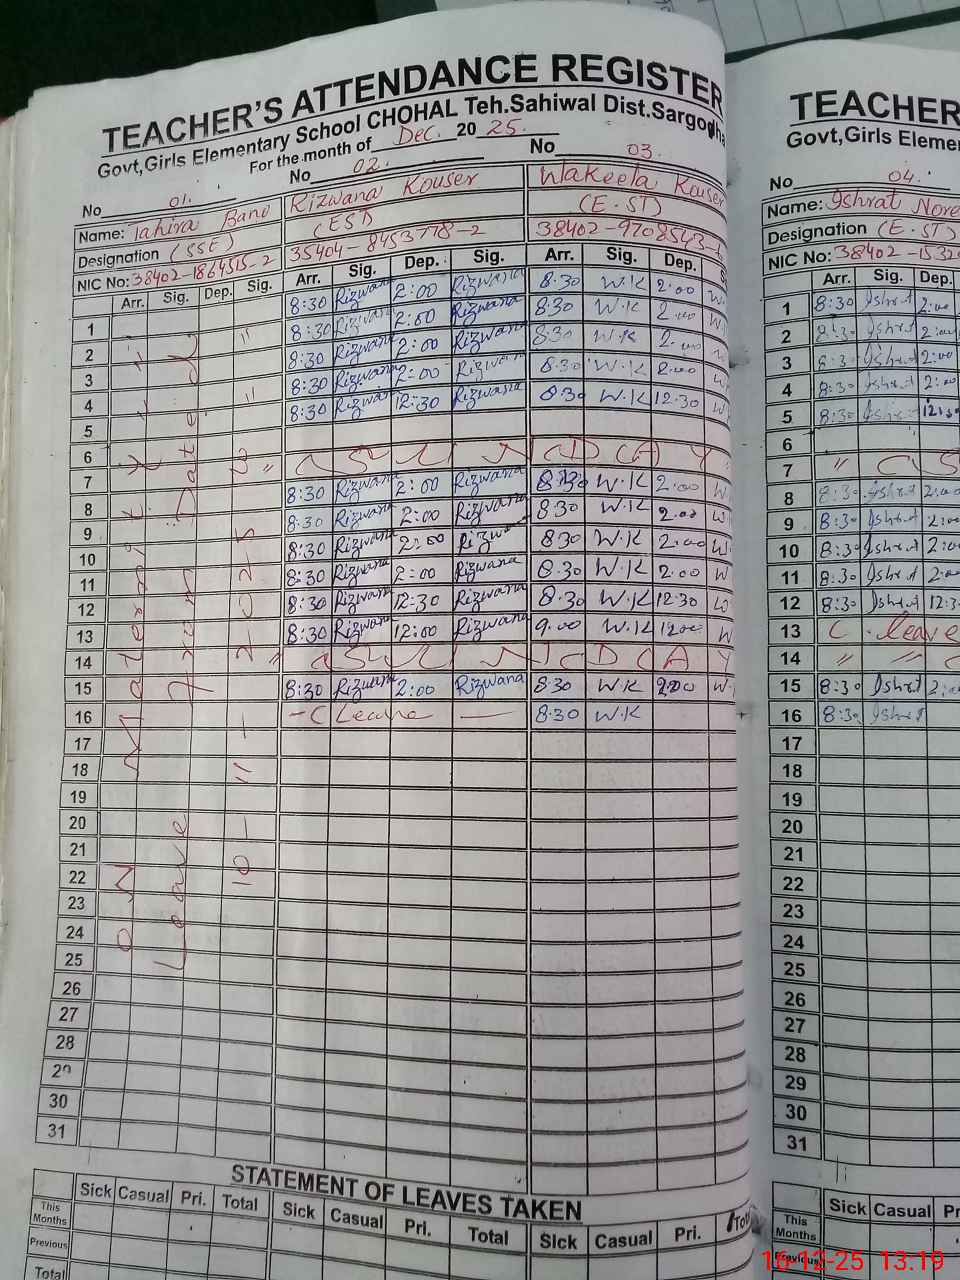 TEACHER'S ATTENDANCE REGISTER
Govt,Girls Elementary School CHOHAL Teh.Sahiwal Dist.Sargodha
For the month of Dec. 20 25.
No 01. No 02. No 03.
Name: Tahira Bano Rizwana Kouser Wakeela Kouser
Designation (SSE) (EST) (E.ST)
NIC No: 38402-1864515-2 35404-8453778-2 38402-9708543-
Arr. Sig. Dep. Sig. Arr. Sig. Dep. Sig. Arr. Sig. Dep.
1 8:30 Rizwana 2:00 Rizwana 8:30 W.K 2:00 W
2 8:30 Rizwana 2:00 Rizwana 8:30 W.K 2:00 W
3 8:30 Rizwana 2:00 Rizwana 8:30 W.K 2:00
4 8:30 Rizwana 2:00 Rizwana 8:30 W.K 2:00 W
5 8:30 Rizwana 12:30 Rizwana 8:30 W.K 12:30 W
6
7
8 8:30 Rizwana 2:00 Rizwana 8:30 W.K 2:00 W
9 8:30 Rizwana 2:00 Rizwana 8:30 W.K 2:00 W
10 8:30 Rizwana 2:00 Rizwana 8:30 W.K 2:00 W
11 8:30 Rizwana 2:00 Rizwana 8:30 W.K 2:00 W
12 8:30 Rizwana 12:30 Rizwana 8:30 W.K 12:30 W
13 8:30 Rizwana 12:00 Rizwana 9:00 W.K 12:00 W
14
15 8:30 Rizwana 2:00 Rizwana 8:30 W.K 2:00 W
16 - C Leave - 8:30 W.K
17
18
19
20
21
22
23
24
25
26
27
28
29
30
31
Leave From Date
STATEMENT OF LEAVES TAKEN
Sick Casual Pri. Total Sick Casual Pri. Total Sick Casual Pri. Total
This Months
Previous
Total
TEACHER
Govt,Girls Eleme
No 04.
Name: Ishrat Nore
Designation (E.ST)
NIC No: 38402-1532
Arr. Sig. Dep.
1 8:30 Ishrat 2:00
2 8:30 Ishrat 2:00
3 8:30 Ishrat 2:00
4 8:30 Ishrat 2:00
5 8:30 Ishrat 12:30
6
7
8 8:30 Ishrat 2:00
9 8:30 Ishrat 2:00
10 8:30 Ishrat 2:00
11 8:30 Ishrat 2:00
12 8:30 Ishrat 12:3
13 C. leave
14
15 8:30 Ishrat 2:00
16 8:30 Ishrat
17
18
19
20
21
22
23
24
25
26
27
28
29
30
31
Sick Casual
This Months
Previous
16-12-25 13:19